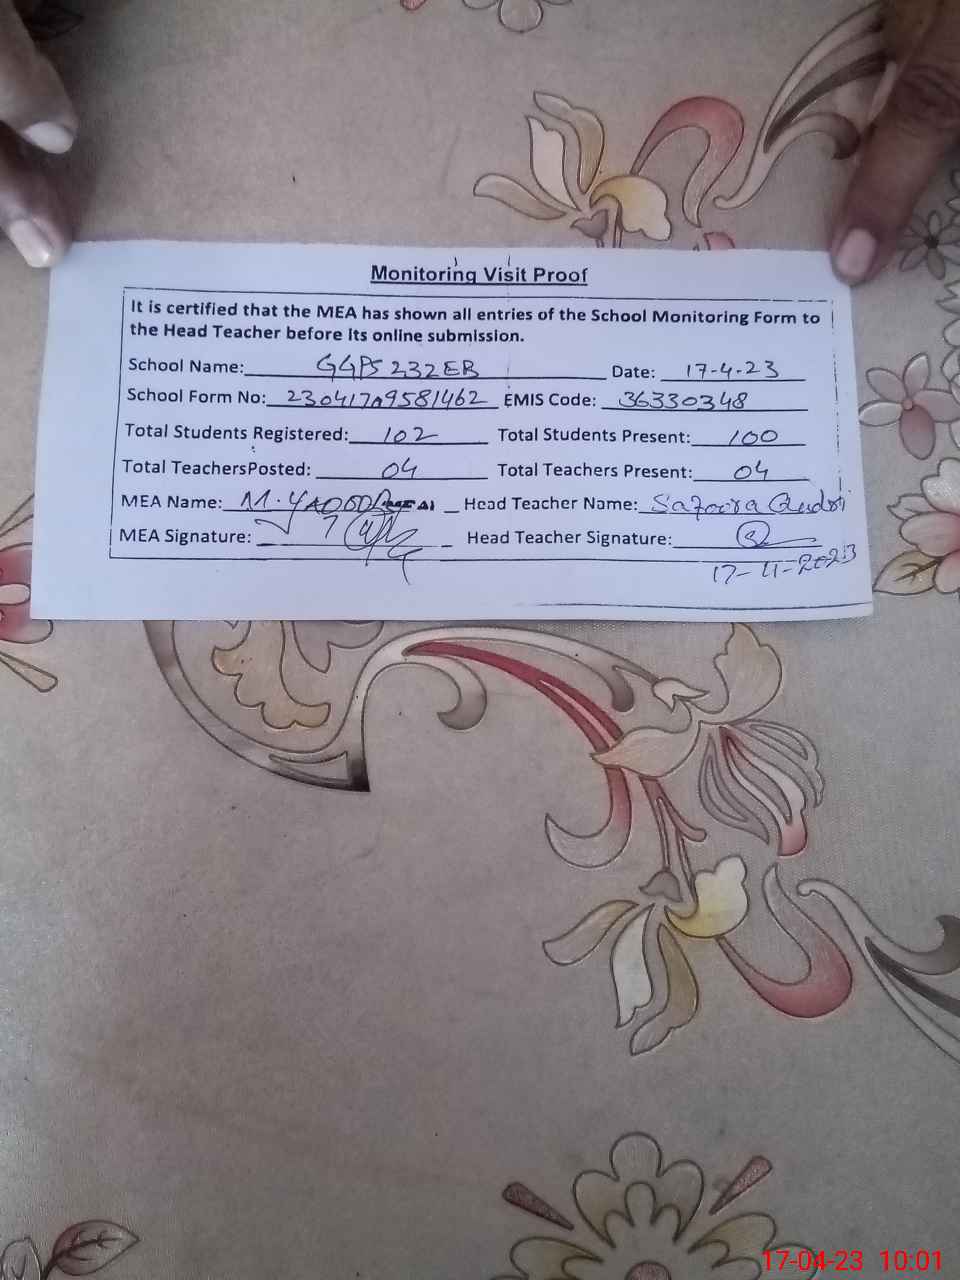 Monitoring Visit Proof
It is certified that the MEA has shown all entries of the School Monitoring Form to
the Head Teacher before its online submission.
School Name: GGPS 232EB Date: 17-4-23
School Form No: 230417A9581462 EMIS Code: 36330348
Total Students Registered: 102 Total Students Present: 100
Total TeachersPosted: 04 Total Teachers Present: 04
MEA Name: M. Head Teacher Name: Safoora
MEA Signature: Head Teacher Signature:
17-4-2023
17-04-23 10:01